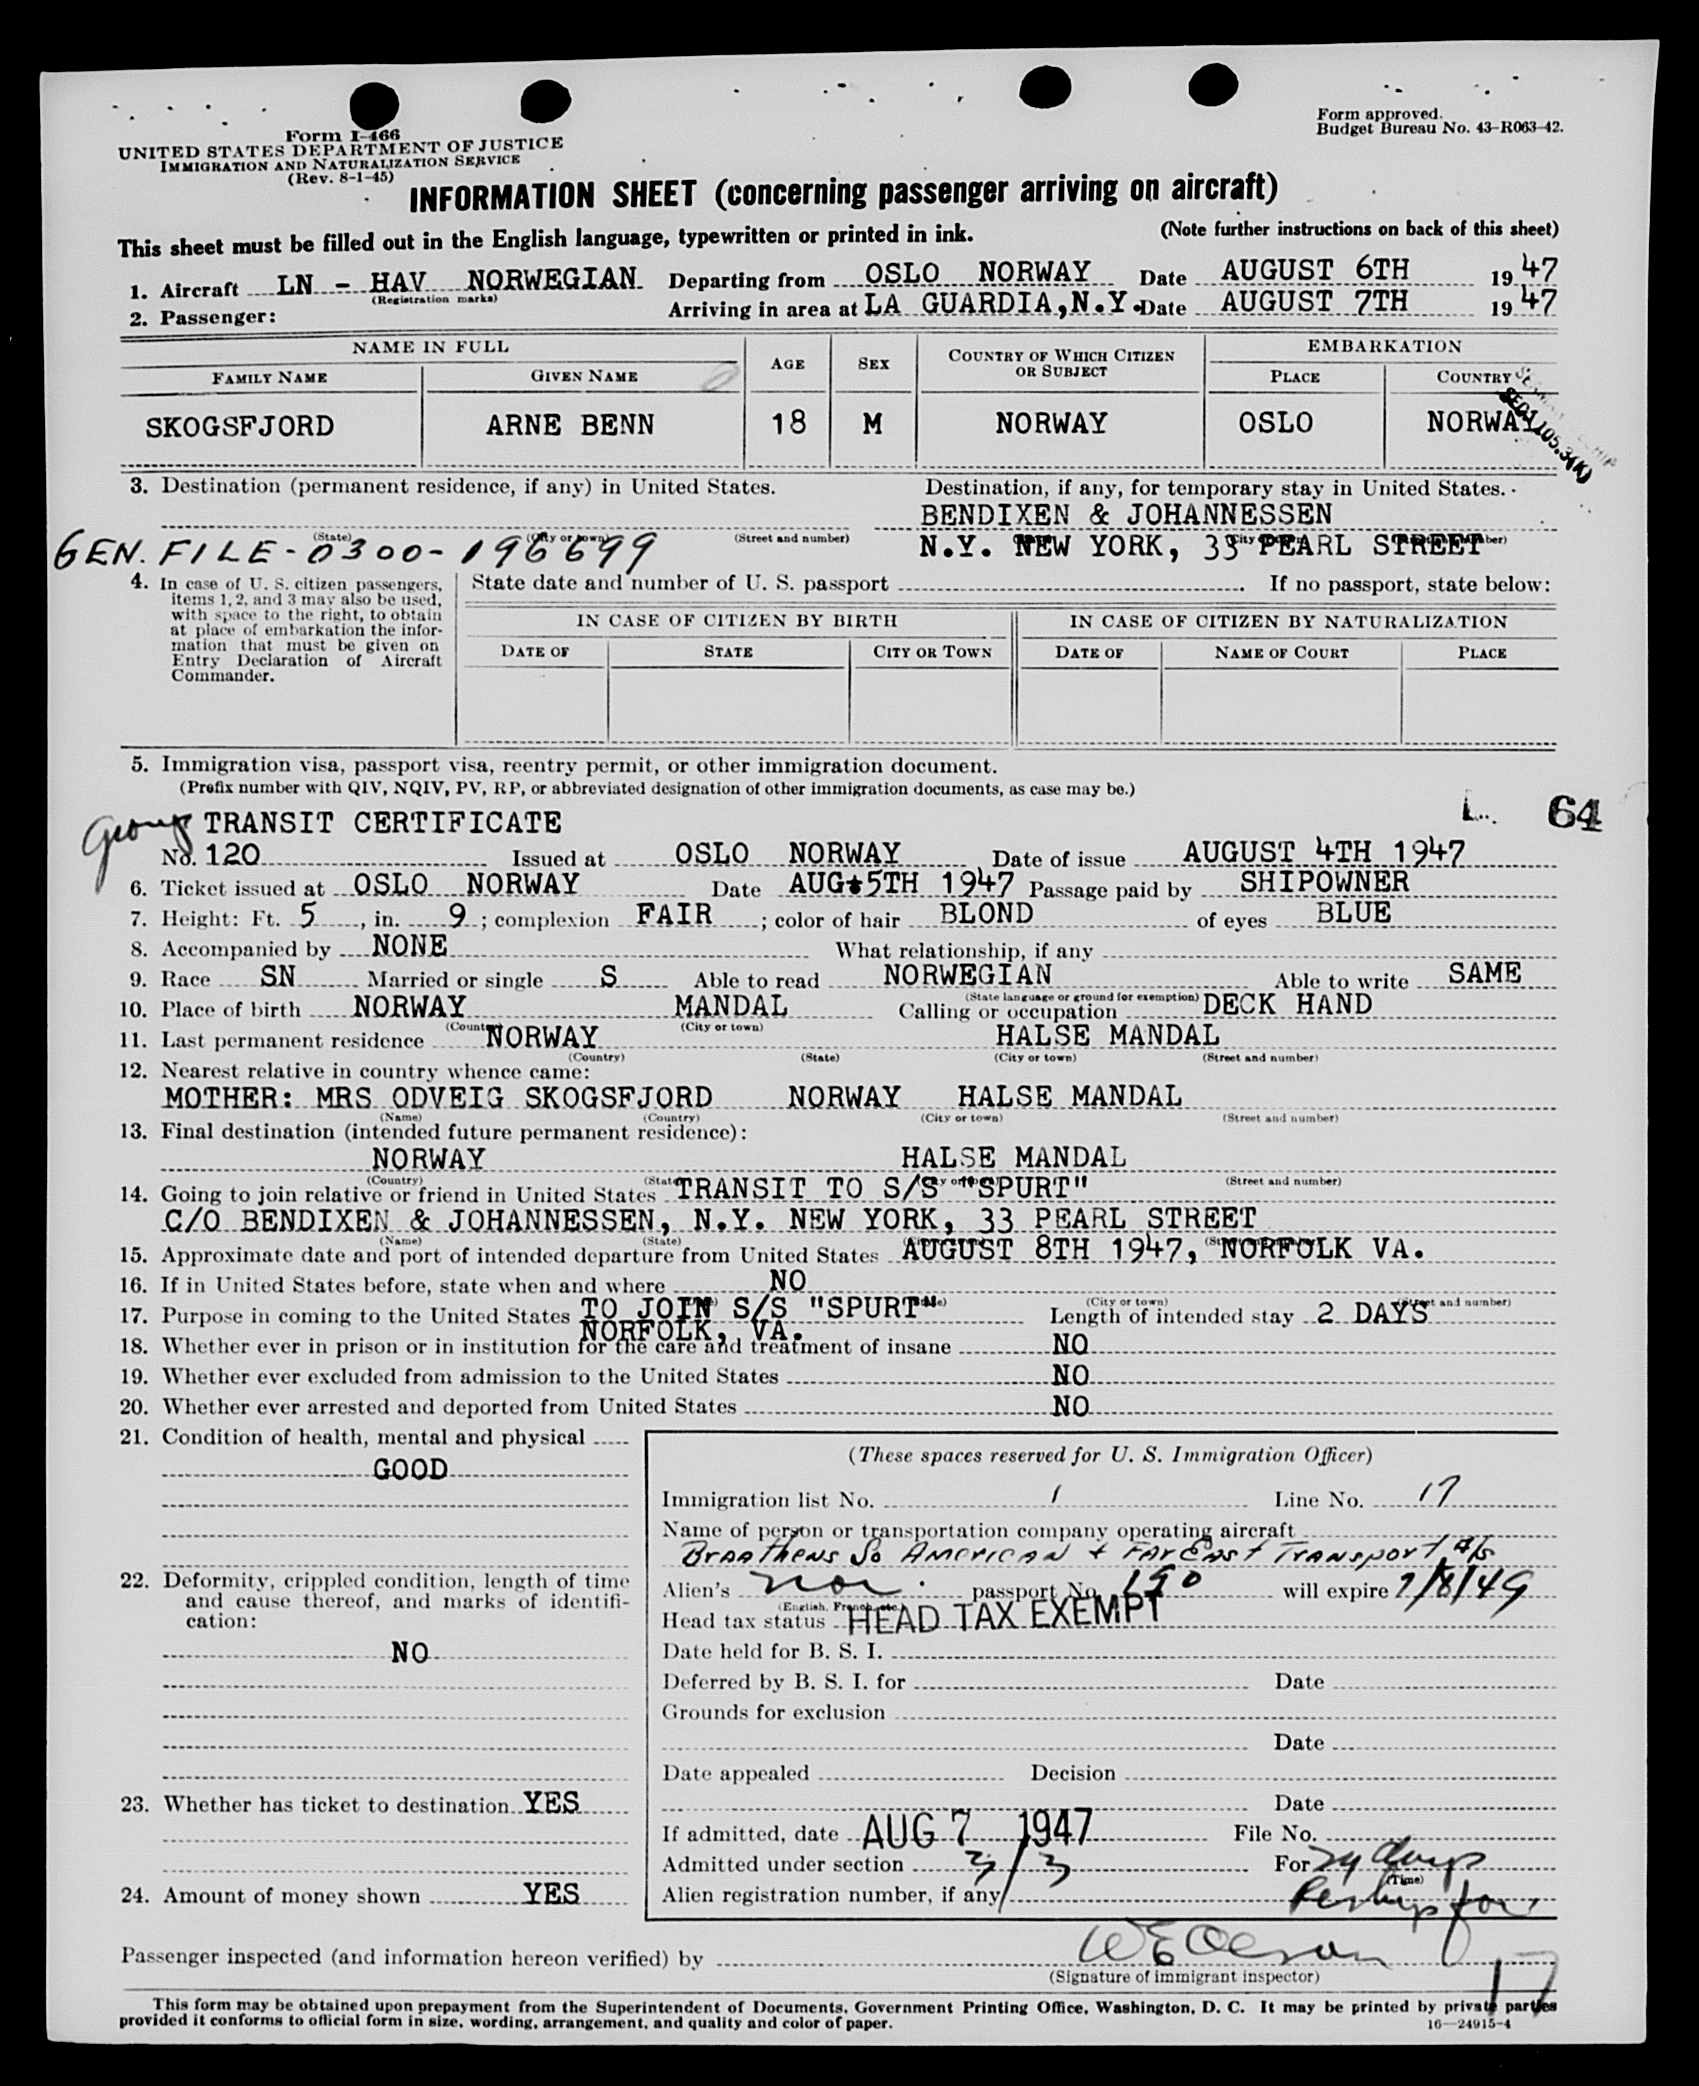 Form approved.
Budget Bureau No. 43-R063-42.
Form I-466
UNITED STATES DEPARTMENT OF JUSTICE
IMMIGRATION AND NATURALIZATION SERVICE
(Rev. 8-1-45)
INFORMATION SHEET (concerning passenger arriving on aircraft)
This sheet must be filled out in the English language, typewritten or printed in ink. (Note further instructions on back of this sheet)
1. Aircraft LN - HAV NORWEGIAN Departing from OSLO NORWAY Date AUGUST 6TH 19 47
(Registration marks)
2. Passenger: Arriving in area at LA GUARDIA, N.Y. Date AUGUST 7TH 19 47
NAME IN FULL AGE SEX COUNTRY OF WHICH CITIZEN OR SUBJECT EMBARKATION
FAMILY NAME GIVEN NAME PLACE COUNTRY
SKOGSFJORD ARNE BENN 18 M NORWAY OSLO NORWAY
3. Destination (permanent residence, if any) in United States. Destination, if any, for temporary stay in United States.
BENDIXEN & JOHANNESSEN
(State) (City or town) (Street and number)
GEN. FILE - 0300 - 196699 N.Y. NEW YORK, 33 PEARL STREET
4. In case of U. S. citizen passengers, items 1, 2, and 3 may also be used, with space to the right, to obtain at place of embarkation the information that must be given on Entry Declaration of Aircraft Commander.
State date and number of U. S. passport . If no passport, state below:
IN CASE OF CITIZEN BY BIRTH IN CASE OF CITIZEN BY NATURALIZATION
DATE OF STATE CITY OR TOWN DATE OF NAME OF COURT PLACE
5. Immigration visa, passport visa, reentry permit, or other immigration document.
(Prefix number with QIV, NQIV, PV, RP, or abbreviated designation of other immigration documents, as case may be.)
64
TRANSIT CERTIFICATE
No. 120 Issued at OSLO NORWAY Date of issue AUGUST 4TH 1947
6. Ticket issued at OSLO NORWAY Date AUG 5TH 1947 Passage paid by SHIPOWNER
7. Height: Ft. 5, in. 9; complexion FAIR; color of hair BLOND of eyes BLUE
8. Accompanied by NONE What relationship, if any
9. Race SN Married or single S Able to read NORWEGIAN Able to write SAME
(State language or ground for exemption)
10. Place of birth NORWAY MANDAL Calling or occupation DECK HAND
(Country) (City or town)
11. Last permanent residence NORWAY HALSE MANDAL
(Country) (State) (City or town) (Street and number)
12. Nearest relative in country whence came:
MOTHER: MRS ODVEIG SKOGSFJORD NORWAY HALSE MANDAL
(Name) (Country) (City or town) (Street and number)
13. Final destination (intended future permanent residence):
NORWAY HALSE MANDAL
(Country) (State) (City or town) (Street and number)
14. Going to join relative or friend in United States TRANSIT TO S/S "SPURT"
C/O BENDIXEN & JOHANNESSEN, N.Y. NEW YORK, 33 PEARL STREET
(Name) (State)
15. Approximate date and port of intended departure from United States AUGUST 8TH 1947, NORFOLK VA.
16. If in United States before, state when and where NO
(City or town) (Street and number)
17. Purpose in coming to the United States TO JOIN S/S "SPURT" Length of intended stay 2 DAYS
NORFOLK, VA.
18. Whether ever in prison or in institution for the care and treatment of insane NO
19. Whether ever excluded from admission to the United States NO
20. Whether ever arrested and deported from United States NO
21. Condition of health, mental and physical
GOOD
22. Deformity, crippled condition, length of time and cause thereof, and marks of identification:
NO
23. Whether has ticket to destination YES
24. Amount of money shown YES
(These spaces reserved for U. S. Immigration Officer)
Immigration list No. 1 Line No. 17
Name of person or transportation company operating aircraft
Braathens So American + Far East Transport A/S
Alien's nor. passport No. 190 will expire 7/8/49
(English, French, etc.)
Head tax status HEAD TAX EXEMPT
Date held for B. S. I.
Deferred by B. S. I. for Date
Grounds for exclusion
Date
Date appealed Decision
Date
If admitted, date AUG 7 1947 File No.
Admitted under section 3/3 For 29 days
(Time)
Alien registration number, if any
Passenger inspected (and information hereon verified) by
(Signature of immigrant inspector)
17
This form may be obtained upon prepayment from the Superintendent of Documents, Government Printing Office, Washington, D. C. It may be printed by private parties
provided it conforms to official form in size, wording, arrangement, and quality and color of paper.
16—24915-4